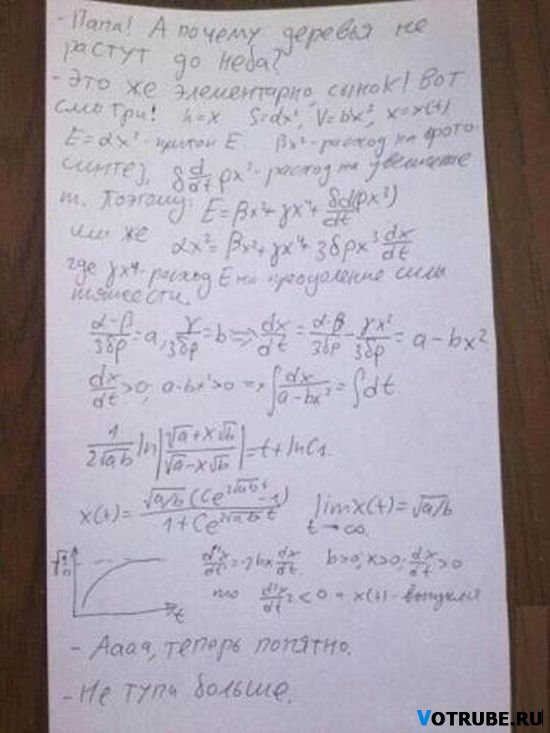 - Папа! А почему деревья не
растут до неба?
- Это же элементарно, сынок! Вот
смотри! h=x S=αx², V=bx³, x=x(t)
E=αx² - приток E. βx² - расход на фото-
синтез, δ d/dt ρx³ - расход на увеличение
m. Поэтому: E=βx²+γx⁴+δd(ρx³)/dt
или же αx²=βx²+γx⁴+3δρx² dx/dt
где γx⁴ - расход E на преодоление силы
тяжести.
(α-β)/3δρ=a, γ/3δρ=b => dx/dt=(α-β)/3δρ - γx²/3δρ = a-bx²
dx/dt>0; a-bx²>0 => ∫dx/(a-bx²)=∫dt
1/(2√ab) ln|(√a+x√b)/(√a-x√b)|=t+lnC₁.
x(t)=√a/b (Ce^(2√ab t)-1)/(1+Ce^(2√ab t)) lim x(t)=√a/b
t→∞
√a/b d²x/dt²=-2bx dx/dt. b>0; x>0; dx/dt>0
t то d²x/dt²<0 => x(t) - выпуклая
- Аааа, теперь понятно.
- Не тупи больше.
VOTRUBE.RU